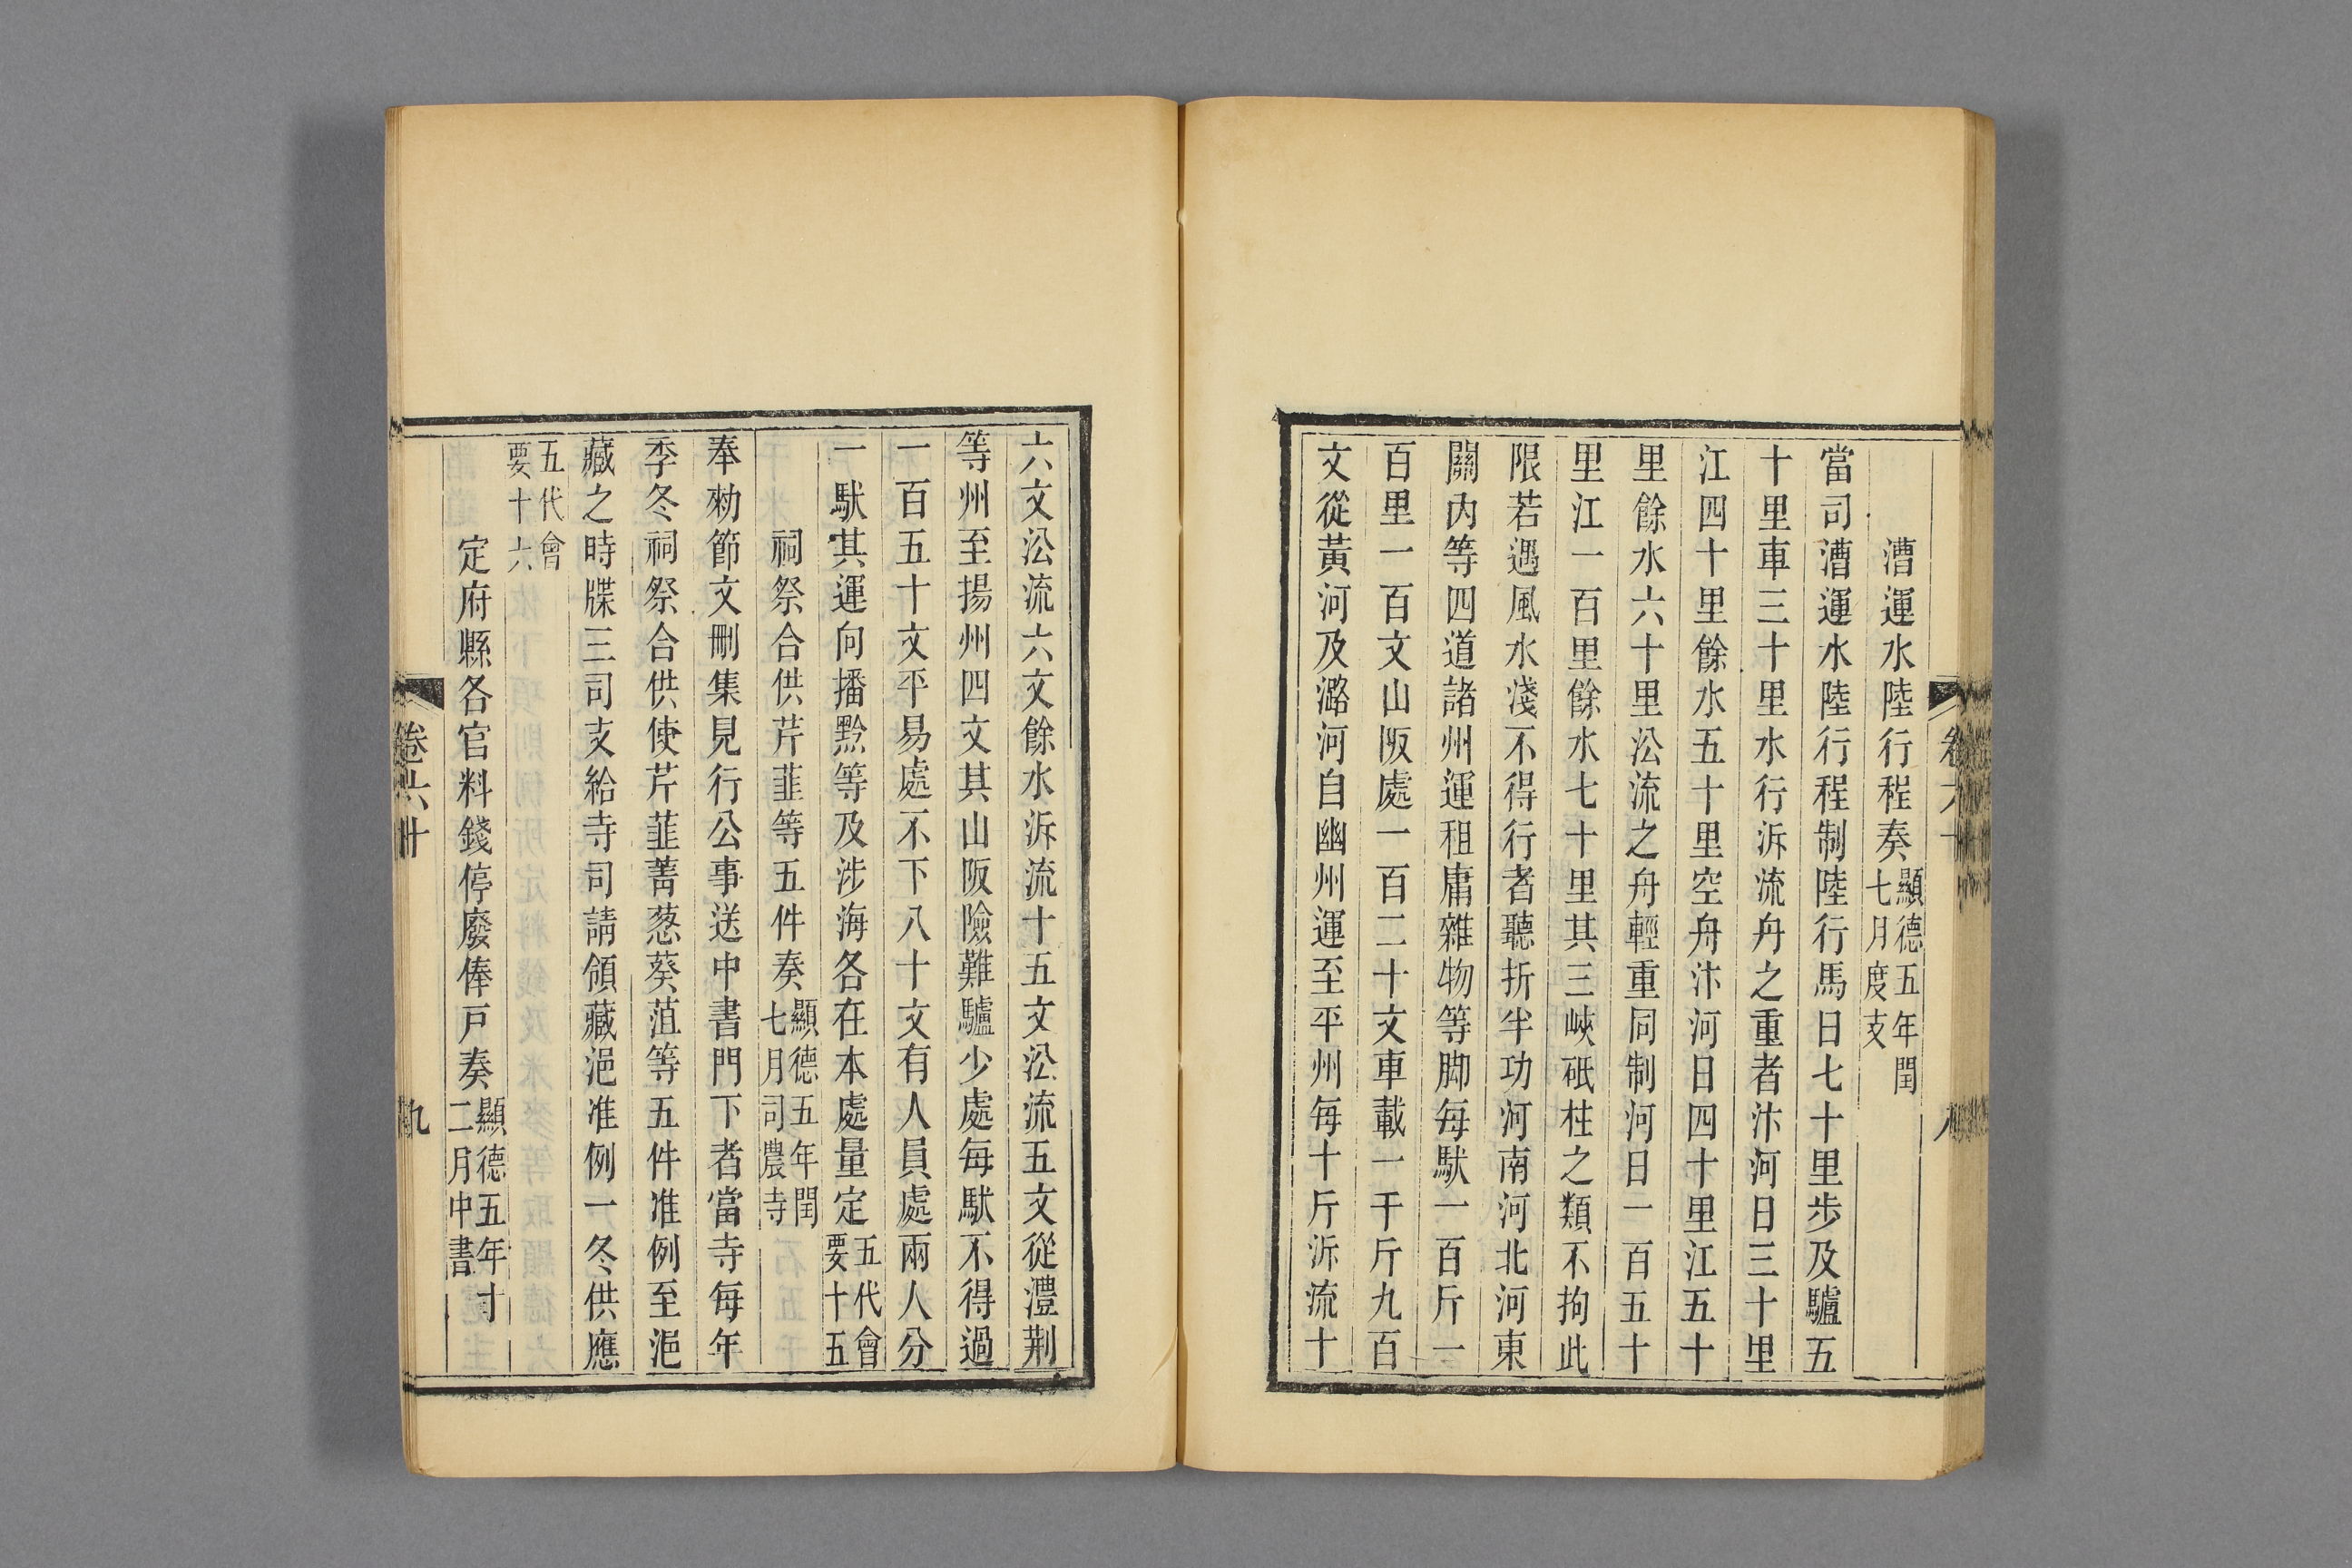 漕運水陸行程奏顯德五年閏七月度支
當司漕運水陸行程制陸行馬日七十里步及驢五
十里車三十里水行泝流舟之重者汴河日三十里
江四十里餘水五十里空舟汴河日四十里江五十
里餘水六十里㳂流之舟輕重同制河日一百五十
里江一百里餘水七十里其三峽砥柱之類不拘此
限若遇風水淺不得行者聽折半功河南河北河東
關內等四道諸州運租庸雜物等脚每馱一百斤一
百里一百文山阪處一百二十文車載一千斤九百
文從黃河及潞河自幽州運至平州每十斤泝流十
六文㳂流六文餘水泝流十五文㳂流五文從澧荆
等州至揚州四文其山阪險難驢少處每馱不得過
一百五十文平易處不下八十文有人員處兩人分
一馱其運向播黔等及涉海各在本處量定五代會要十五
祠祭合供芹韮等五件奏顯德五年閏七月司農寺
奉勑節文刪集見行公事送中書門下者當寺每年
季冬祠祭合供使芹韮菁葱葵菹等五件准例至浥
藏之時牒三司支給寺司請領藏浥准例一冬供應
五代會要十六
定府縣各官料錢停廢俸戸奏顯德五年十二月中書
卷六十
九